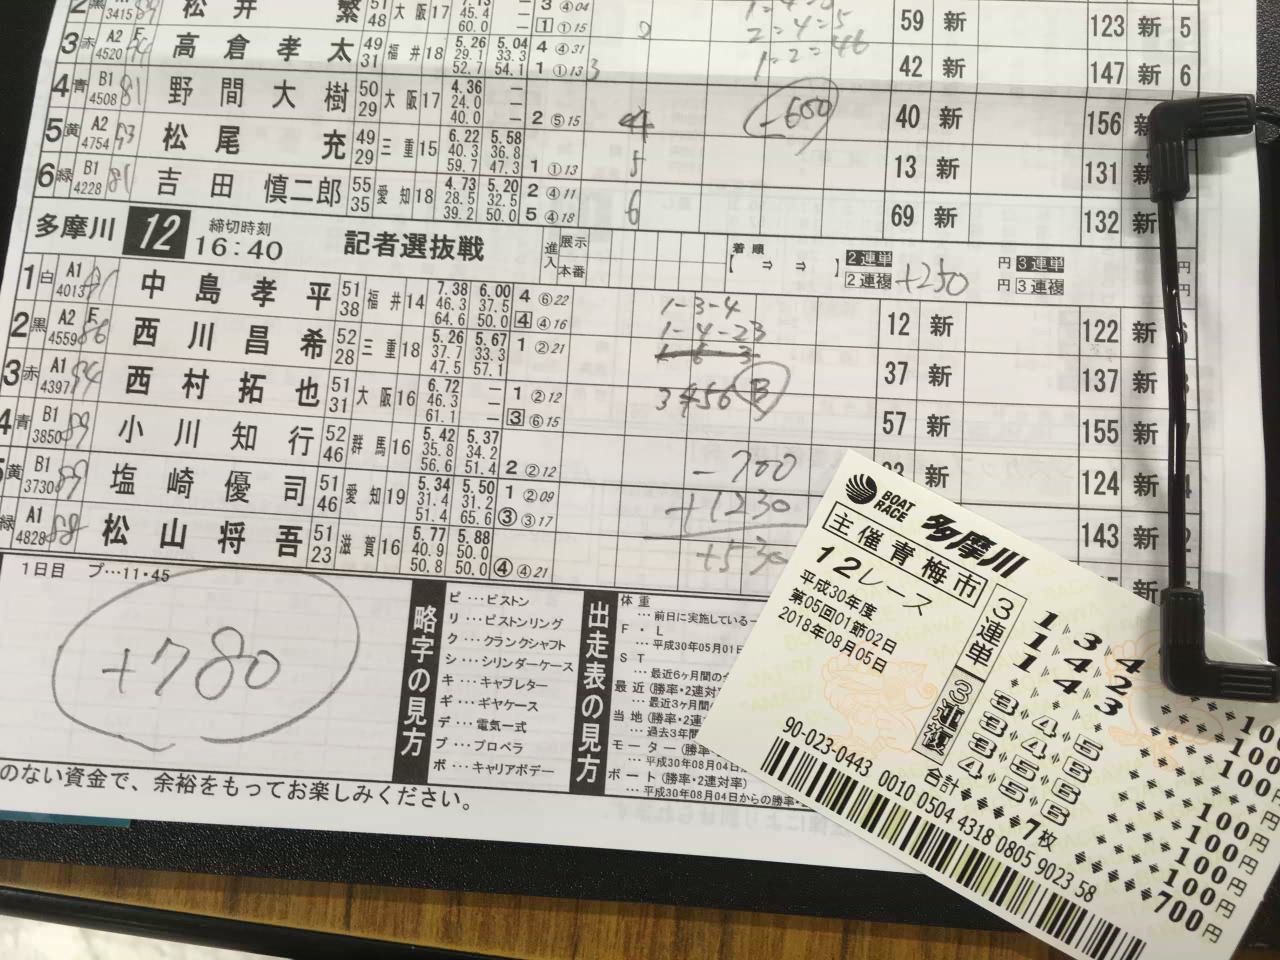 2 黒 3415 松井 繁 51 48 大阪 17 7.13 45.4 60.0 3 ④04 1 ①15 59 新 123 新 5
3 赤 A2 F 4520 高倉孝太 49 31 福井 18 5.26 29.1 52.7 5.04 33.3 54.1 4 ④31 1 ①13 3 42 新 147 新 6
4 青 B1 4508 81 野間大樹 50 29 大阪 17 4.36 24.0 40.0 2 ⑤15 4 -600 40 新 156 新
5 黄 A2 4754 松尾 充 49 29 三重 15 6.22 40.3 59.7 5.58 36.8 47.3 1 ①13 5 13 新 131 新
6 緑 B1 4228 吉田 慎二郎 55 35 愛知 18 4.73 28.5 39.2 5.20 32.5 50.0 2 ④11 5 ④18 6 69 新 132 新
多摩川 12 締切時刻 16:40 記者選抜戦 進入 展示 本番 着順 【 ⇒ ⇒ 】 2連単 2連複 +250 円 3連単 円 3連複 円
1 白 A1 4013 中島孝平 51 38 福井 14 7.38 46.3 64.6 6.00 37.5 50.0 4 ⑥22 4 ④16 1-3-4 12 新 122 新
2 黒 A2 F 4559 86 西川昌希 52 28 三重 18 5.26 37.7 47.5 5.67 33.3 57.1 1 ②21 1-4-23 37 新 137 新
3 赤 A1 4397 84 西村拓也 51 31 大阪 16 6.72 46.3 61.1 1 ②12 3 ⑥15 3456 B 57 新 155 新
4 青 B1 3850 89 小川知行 52 46 群馬 16 5.42 35.8 56.6 5.37 34.2 51.4 2 ②12 -700 新 124 新
黄 B1 3730 塩崎優司 51 46 愛知 19 5.34 31.4 51.4 5.50 31.2 65.6 1 ②09 ③ ③17 +1230 143 新
緑 A1 4828 88 松山将吾 51 23 滋賀 16 5.77 40.9 50.8 5.88 50.0 50.0 ④ ④21 +530
1日目 プ…11・45
+780
略字の見方
ピ…ピストン
リ…ピストンリング
ク…クランクシャフト
シ…シリンダーケース
キ…キャブレター
ギ…ギヤケース
デ…電気一式
プ…プロペラ
ボ…キャリアボデー
出走表の見方
体重
…前日に実施している
F・L
…平成30年05月01日
ST
…最近6ヶ月間の
最近(勝率・2連対率)
…最近3ヶ月間
当地(勝率・2連
…過去3年間
モーター(勝率
…平成30年08月04日
ボート(勝率・2連対率)
…平成30年08月04日からの勝率
のない資金で、余裕をもってお楽しみください。
BOAT RACE 多摩川
主催青梅市
12レース
平成30年度
第05回01節02日
2018年08月05日
3連単
1 3 4 100円
1 4 2 100円
1 4 3 100円
3連複
3 4 5 100円
3 4 6 100円
3 5 6 100円
4 5 6 100円
合計 7枚 700円
90-023-0443 0010 0504 4318 0805 9023 58